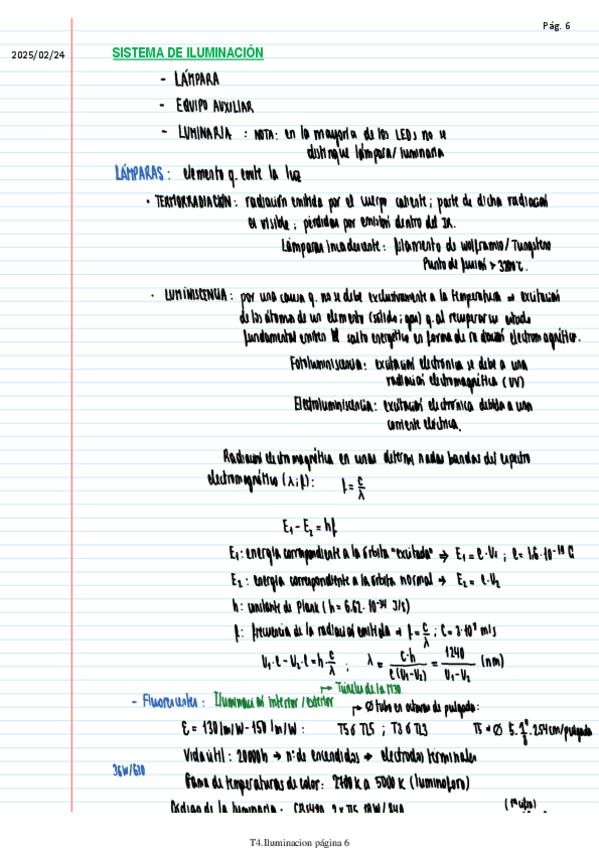 Pág. 6
2025/02/24
SISTEMA DE ILUMINACIÓN
- LÁMPARA
- EQUIPO AUXILIAR
- LUMINARIA : NOTA: en la mayoría de los LEDs no se
distingue lámpara/luminaria
LÁMPARAS: elemento q. emite la luz
• TERMORRADIACIÓN: radiación emitida por el cuerpo caliente; parte de dicha radiación
es visible; pérdidas por emisión dentro del IR.
Lámparas incandescente: filamento de wolframio/Tungsteno
Punto de fusión >
• LUMINISCENCIA: por una causa q. no se debe exclusivamente a la temperatura ⇒ excitación
de los átomos de un elemento (sólido; gas) q. al recuperar su estado
fundamental emiten el salto energético en forma de radiación electromagnética.
Fotoluminiscencia: excitación electrónica se debe a una
radiación electromagnética (UV)
Electroluminiscencia: excitación electrónica debida a una
corriente eléctrica.
Radiación electromagnética en unas determinadas bandas del espectro
electromagnético (λ; f): f = c/λ
E₁ - E₂ = hf
E₁: energía correspondiente a la órbita "excitada" ⇒ E₁ = e·V₁ ; e = 1.6·10⁻¹⁹ C
E₂: energía correspondiente a la órbita normal → E₂ = e·V₂
h: constante de Plank (h = 6.62·10⁻³⁴ J/s)
f: frecuencia de la radiación emitida → f = c/λ ; C = 3·10⁸ m/s
V₁·e - V₂·e = h·c/λ ; λ = c·h/e(V₁-V₂) = 1240/V₁-V₂ (nm)
↦ Túneles de la M30
- Fluorescentes: Iluminación interior/exterior
↦ Ø tubo en octavos de pulgada:
ε = 130 lm/W - 150 lm/W : T5 ó TL5 ; T8 ó TL8 T5 → Ø 5·1/8"·2.54cm/pulgada
Vida útil: 20000h → nº de encendidos → electrodos terminales
36W/830
Gama de temperaturas de color: 2700K a 5000K (luminóforo)
Código de la luminaria: